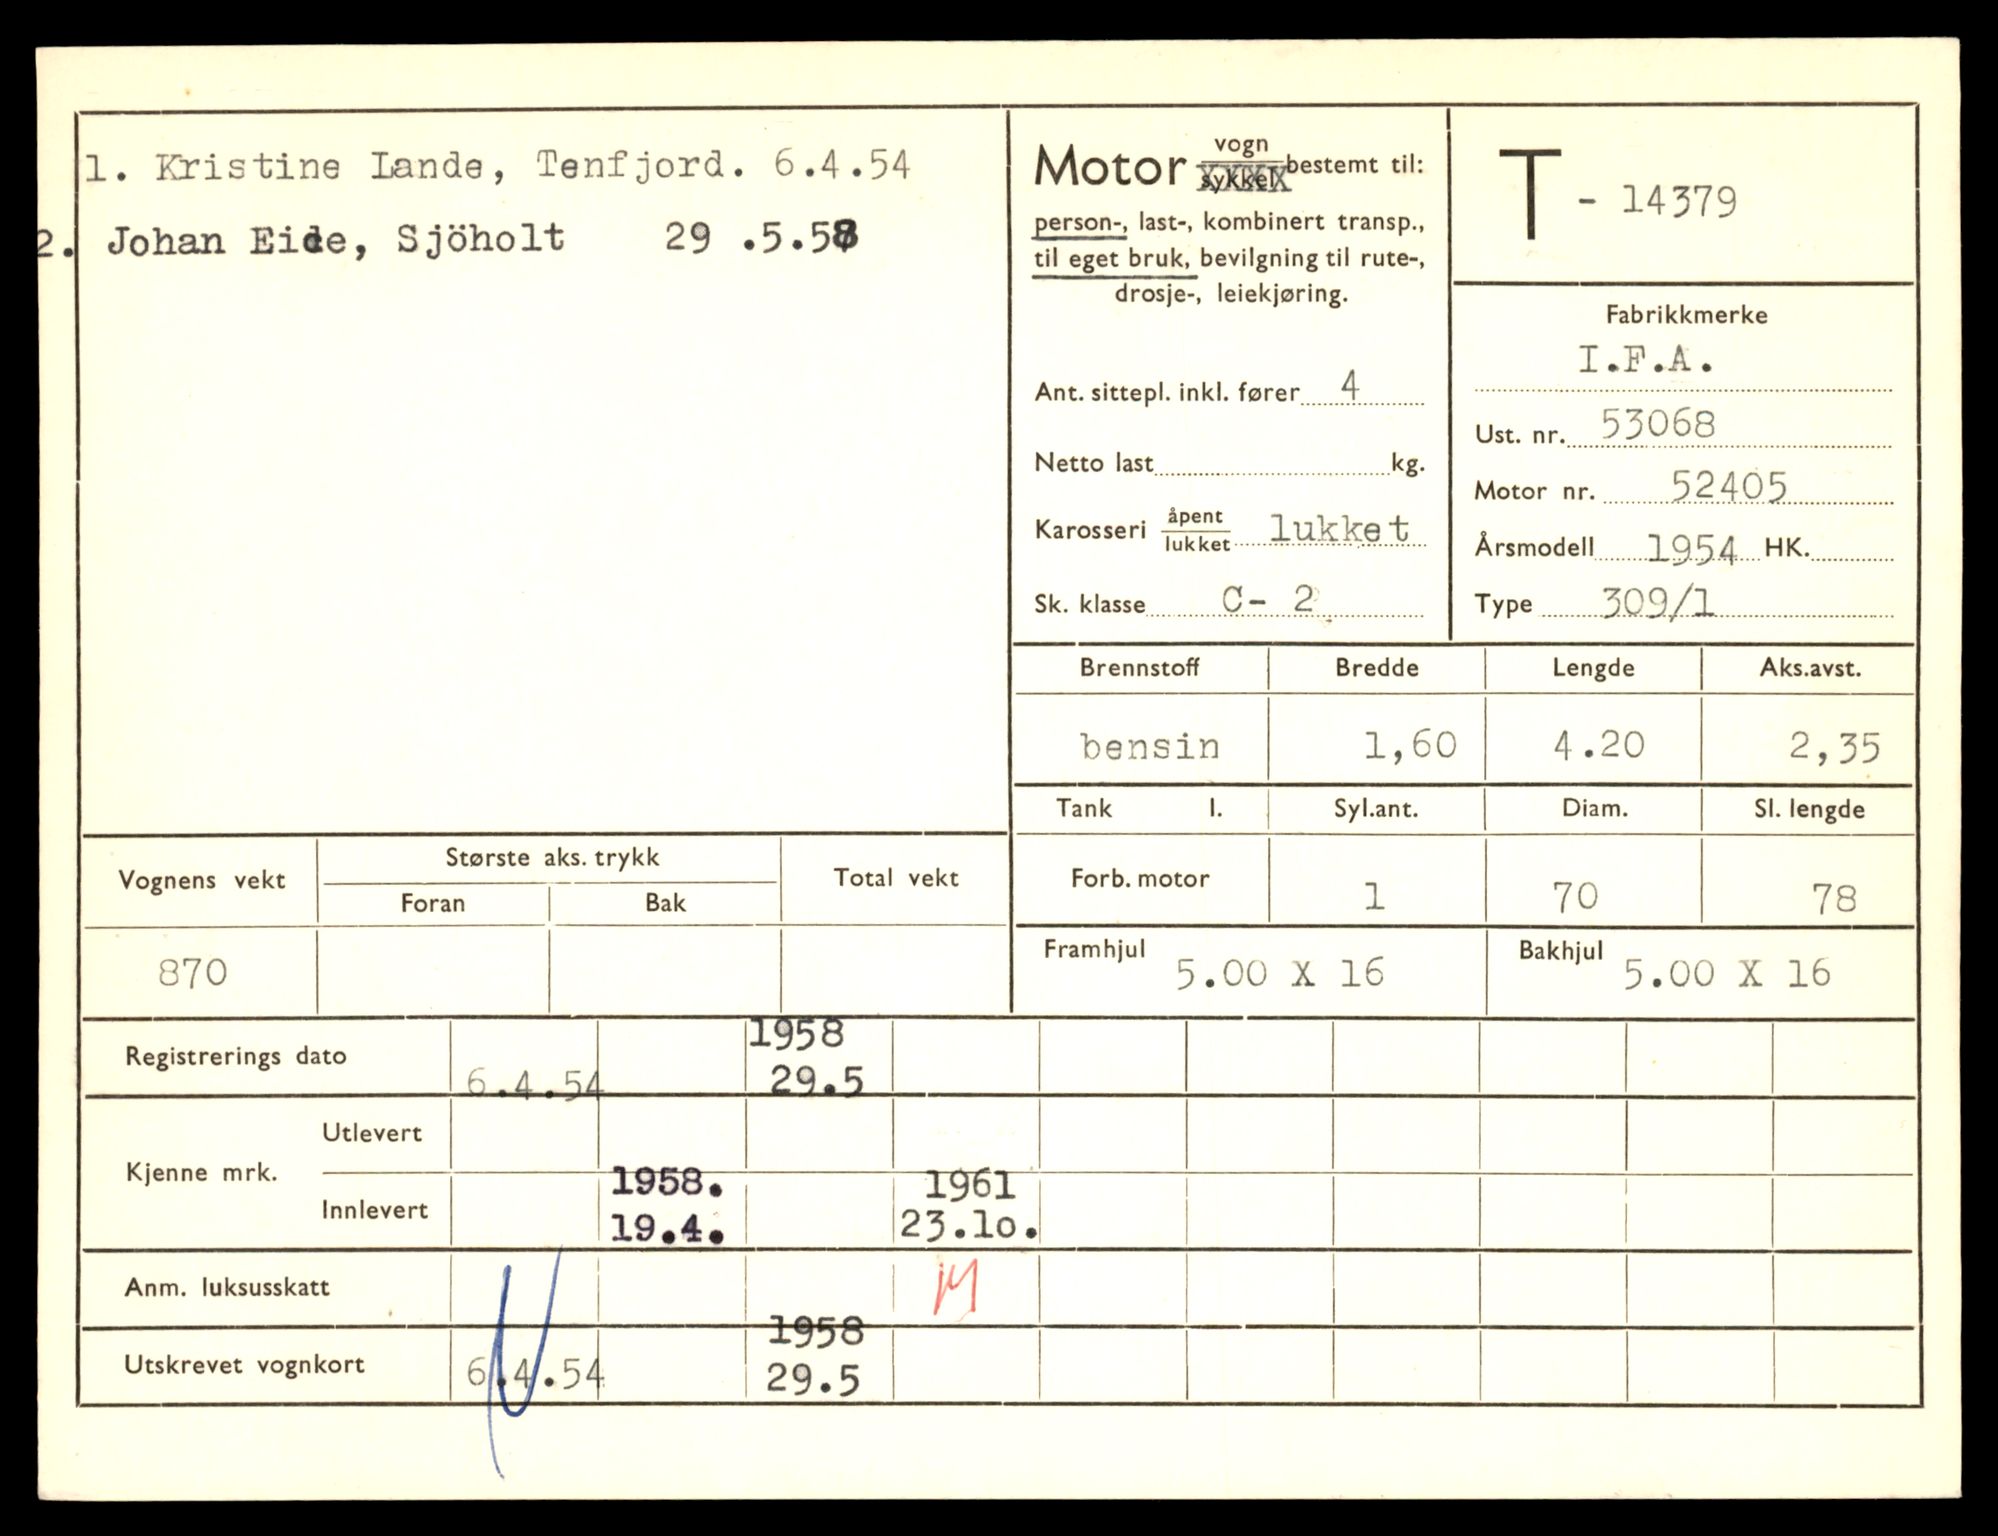 1. Kristine Lande, Tenfjord. 6.4.54
2. Johan Eide, Sjöholt 29 .5.58
Motor vogn sykkel bestemt til:
person-, last-, kombinert transp.,
til eget bruk, bevilgning til rute-,
drosje-, leiekjøring.
Ant. sittepl. inkl. fører 4
Netto last kg.
Karosseri åpent lukket lukket
Sk. klasse C- 2
T - 14379
Fabrikkmerke
I.F.A.
Ust. nr. 53068
Motor nr. 52405
Årsmodell 1954 HK.
Type 309/1
Brennstoff Bredde Lengde Aks.avst.
bensin 1,60 4.20 2,35
Tank l. Syl.ant. Diam. Sl. lengde
Forb. motor 1 70 78
Framhjul 5.00 X 16 Bakhjul 5.00 X 16
Vognens vekt Største aks. trykk Total vekt
Foran Bak
870
Registrerings dato 6.4.54 1958 29.5
Kjenne mrk.
Utlevert
Innlevert 1958. 19.4. 1961 23.lo.
Anm. luksusskatt
Utskrevet vognkort 6.4.54 1958 29.5